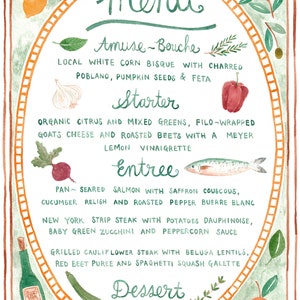 Menu
Amuse-Bouche
LOCAL WHITE CORN BISQUE WITH CHARRED
POBLANO, PUMPKIN SEEDS & FETA
Starter
ORGANIC CITRUS AND MIXED GREENS, FILO-WRAPPED
GOATS CHEESE AND ROASTED BEETS WITH A MEYER
LEMON VINAIGRETTE
Entree
PAN-SEARED SALMON WITH SAFFRON COUSCOUS,
CUCUMBER RELISH AND ROASTED PEPPER BUERRE BLANC
NEW YORK STRIP STEAK WITH POTATOES DAUPHINOISE,
BABY GREEN ZUCCHINI AND PEPPERCORN SAUCE
GRILLED CAULIFLOWER STEAK WITH BELUGA LENTILS,
RED BEET PUREE AND SPAGHETTI SQUASH GALETTE
Dessert